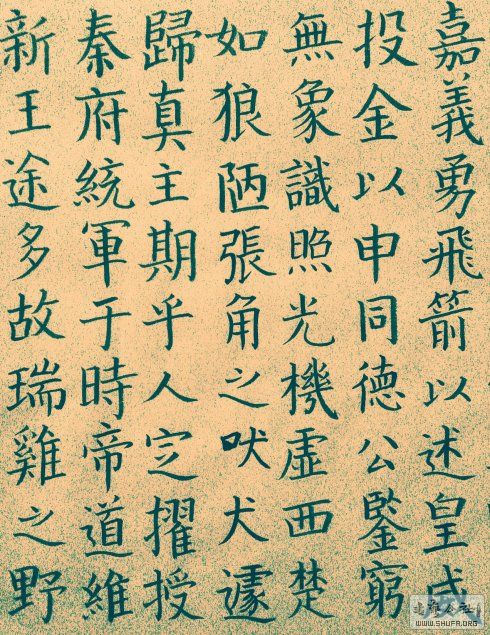 嘉義勇飛箭以述皇
投金以申同德公鑒窮
無象識照光機虛西楚
如狼陋張角之吠犬遽
歸真主期乎人定擢授
秦府統軍于時帝道維
新王途多故瑞雞之野
WWW.SHUFA.ORG